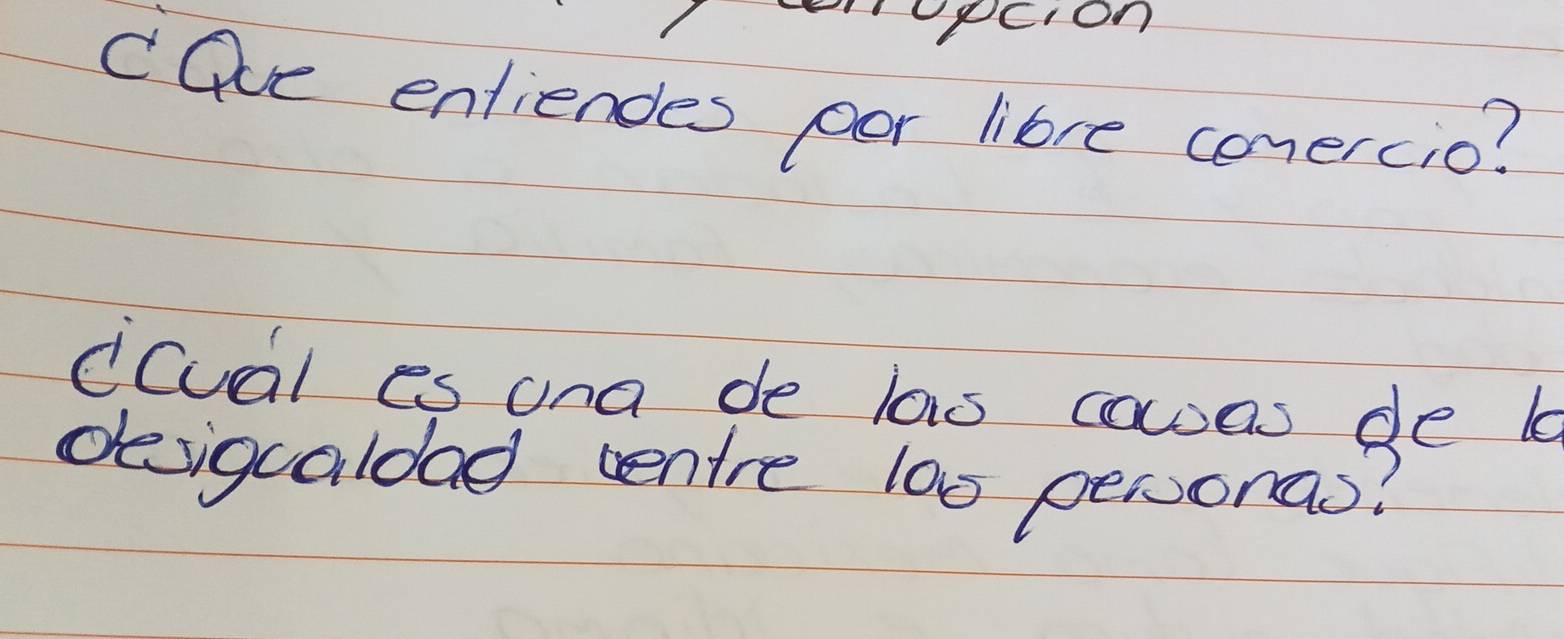 y corrupción
¿Que entiendes por libre comercio?
¿Cuál es una de las causas de la
desigualdad entre las personas?